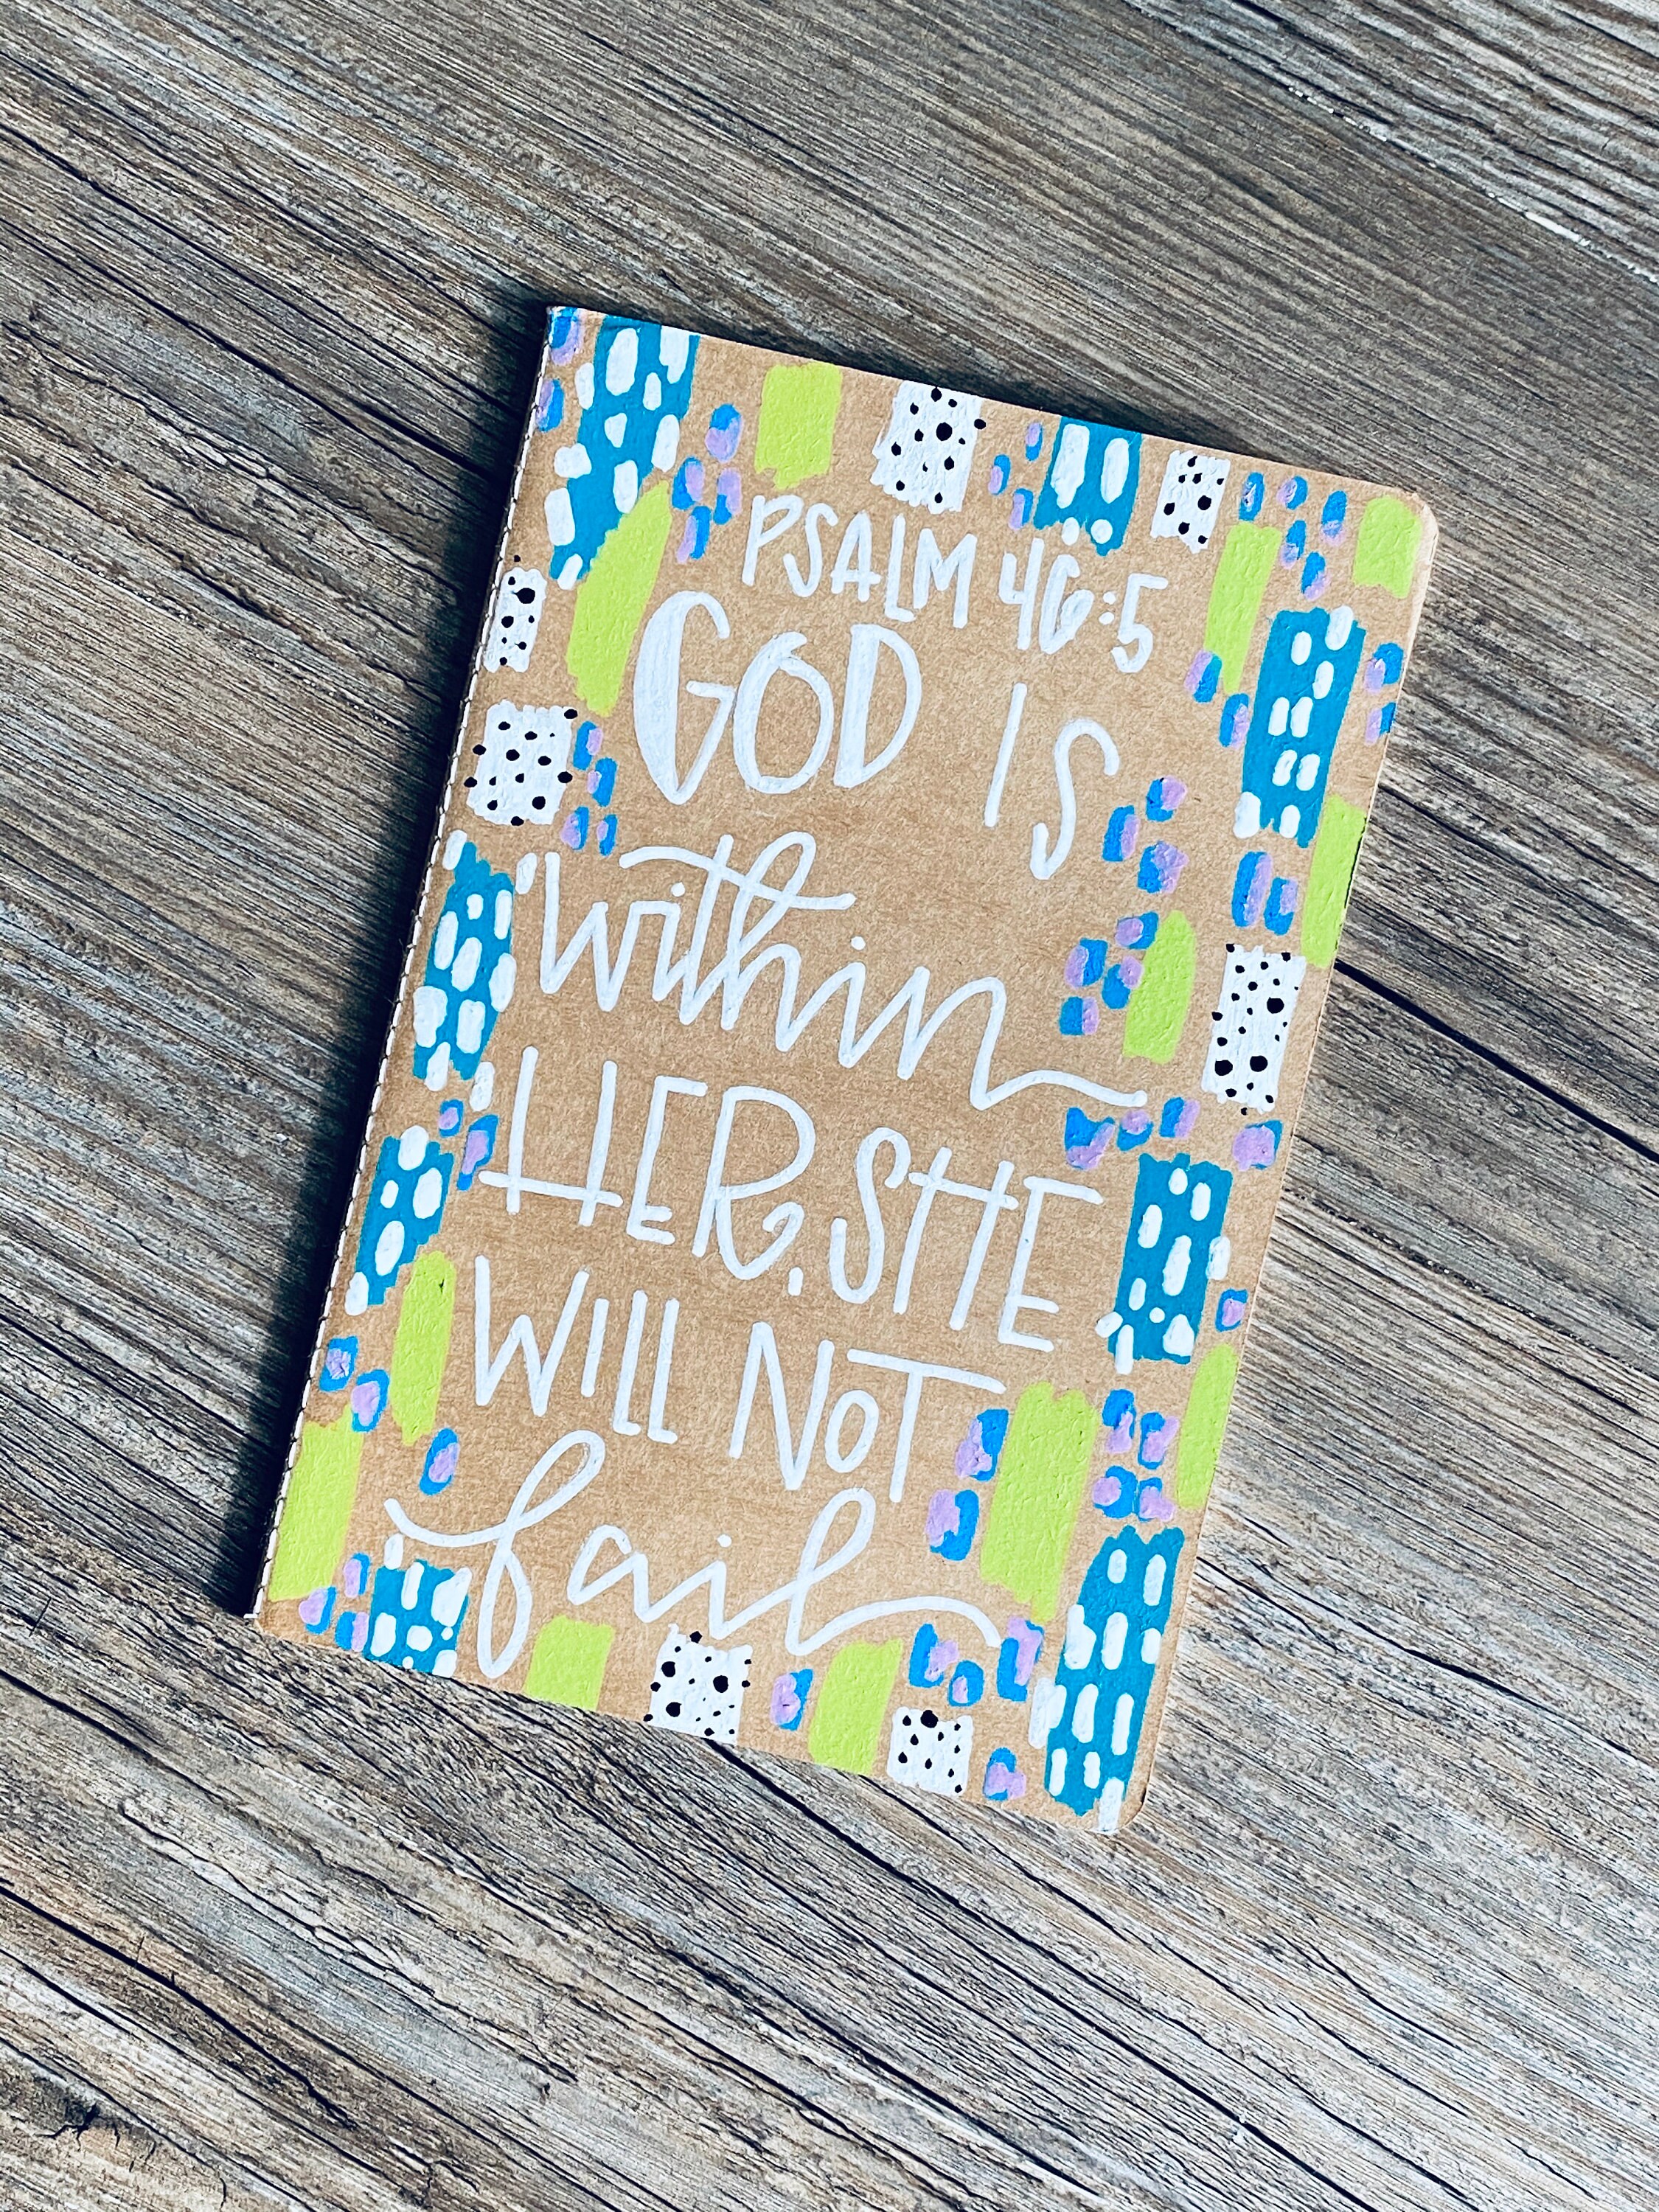 PSALM 46:5
GOD IS
within
HER, SHE
WILL NOT
fail